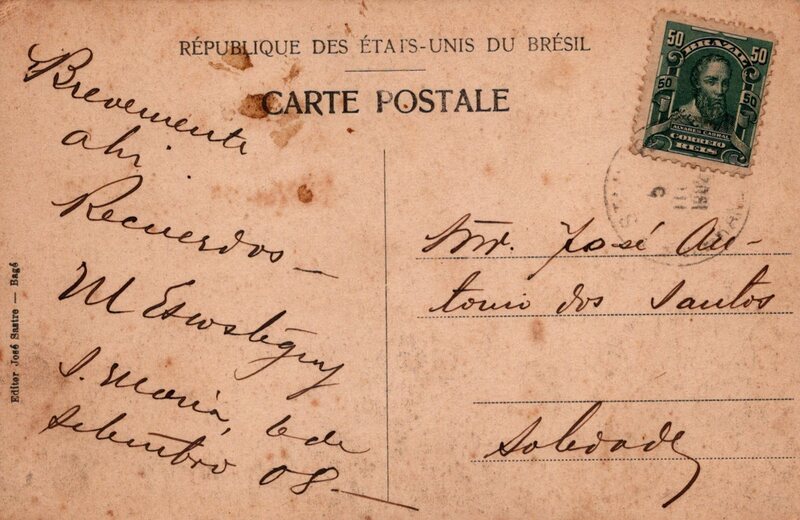 RÉPUBLIQUE DES ÉTATS-UNIS DU BRÉSIL
CARTE POSTALE
50 BRAZIL 50
50 50
ALVARES CABRAL
CORREIO
REIS
Brevemente
ahi.
Recuerdos —
S. Maria, 6 de
Setembro 08 —
José An-
tonio dos Santos
Soledade
Editor José Sastre — Bagé